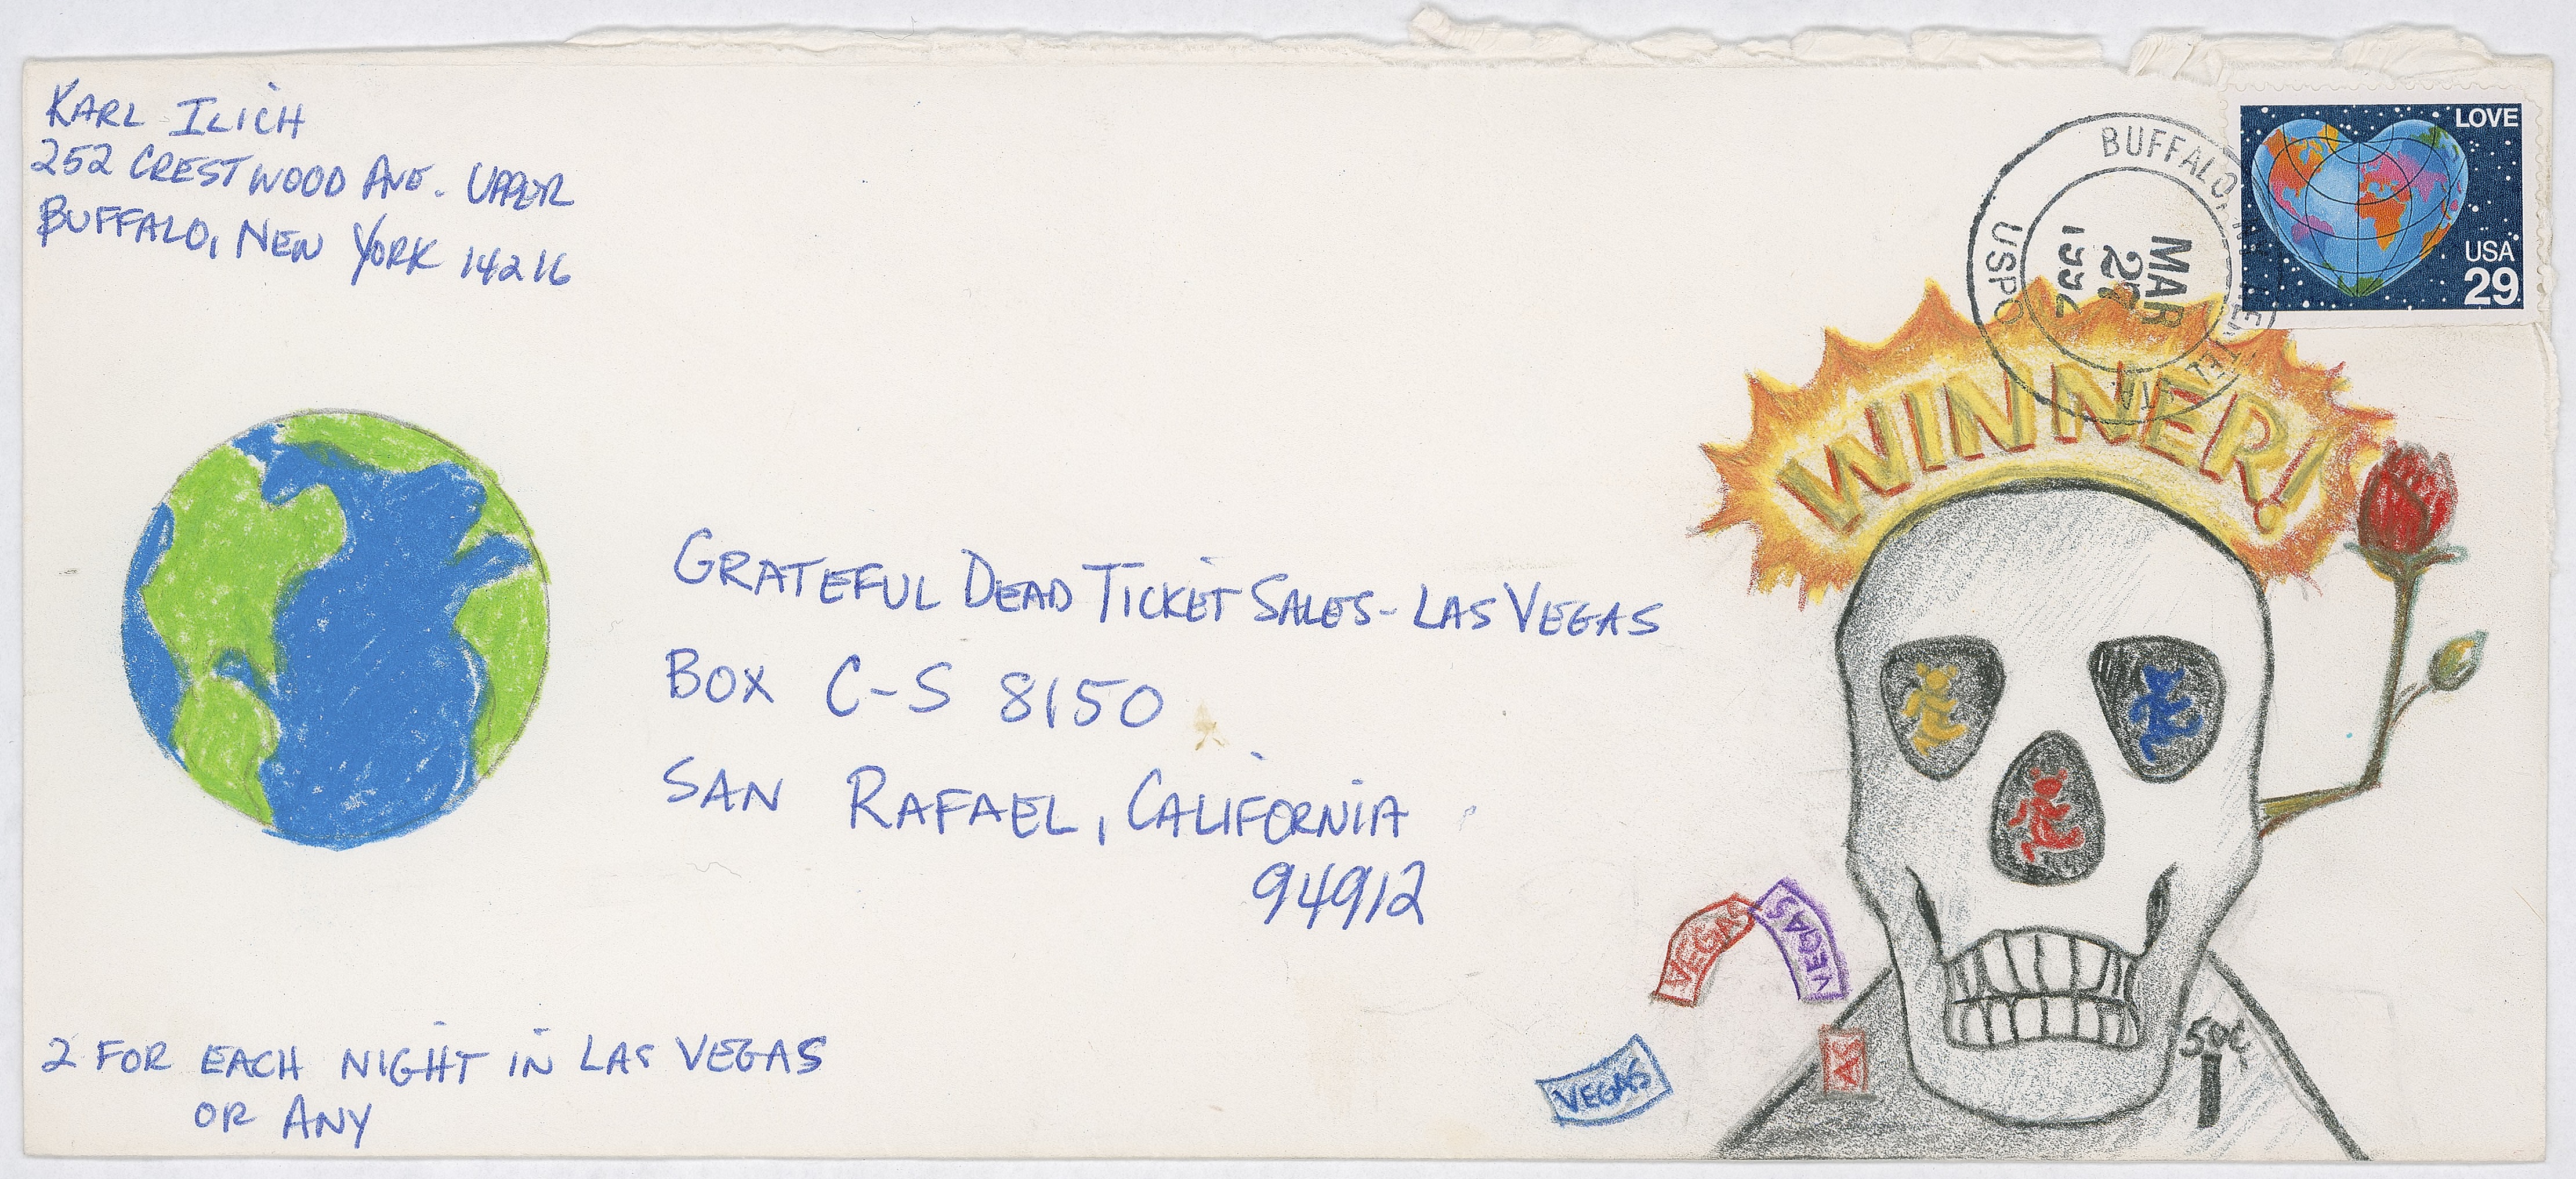 KARL ILICH
252 CRESTWOOD AVE. UPPER
BUFFALO, NEW YORK 14216
BUFFALO, N
USPO
MAR
27
1992
LOVE
USA
29
WINNER!
GRATEFUL DEAD TICKET SALES - LAS VEGAS
BOX C-S 8150
SAN RAFAEL, CALIFORNIA
94912
VEGAS
VEGAS
VEGAS
AS
50¢
2 FOR EACH NIGHT IN LAS VEGAS
OR ANY